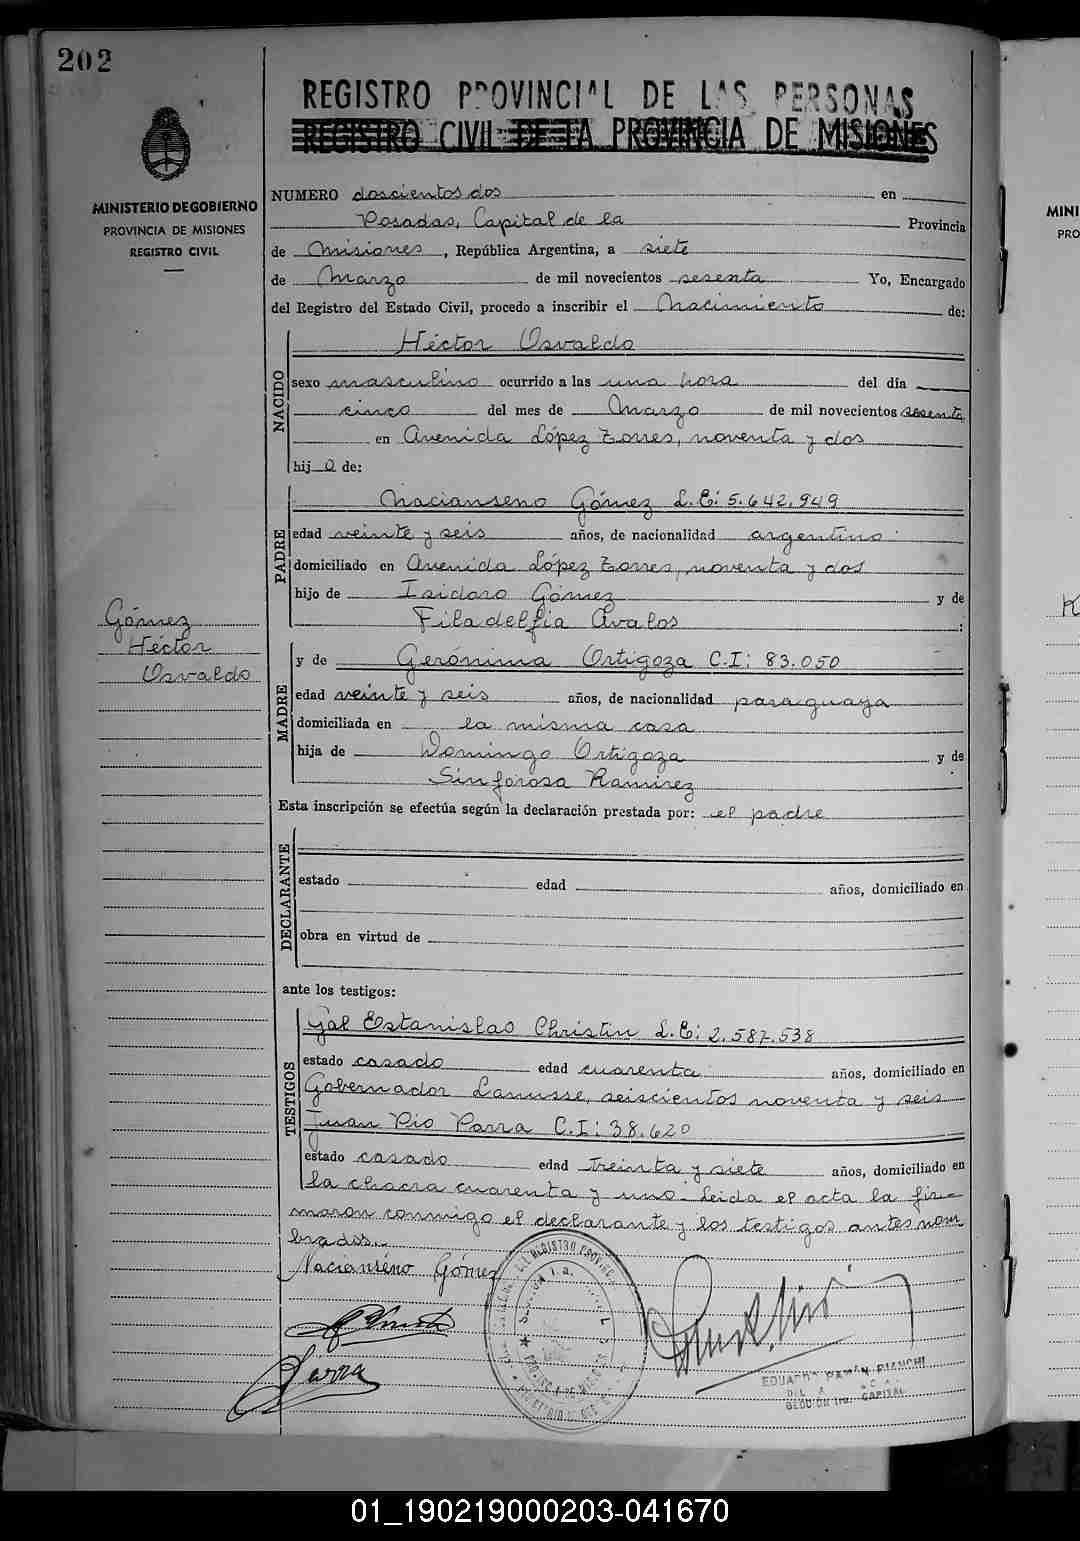 202
REGISTRO PROVINCIAL DE LAS PERSONAS
REGISTRO CIVIL DE LA PROVINCIA DE MISIONES
MINISTERIO DE GOBIERNO
PROVINCIA DE MISIONES
REGISTRO CIVIL
NUMERO doscientos dos en
Posadas, Capital de la Provincia
de Misiones, República Argentina, a siete
de Marzo de mil novecientos sesenta Yo, Encargado
del Registro del Estado Civil, procedo a inscribir el Nacimiento de:
NACIDO
Héctor Osvaldo
sexo masculino ocurrido a las una hora del día
cinco del mes de Marzo de mil novecientos sesenta
en Avenida López Torres, noventa y dos
hij o de:
PADRE
Nacianseno Gómez L.E: 5.642.949
edad veinte y seis años, de nacionalidad argentino
domiciliado en Avenida López Torres, noventa y dos
hijo de Isidoro Gómez y de
Filadelfia Avalos :
Gómez
Héctor
Osvaldo
MADRE
y de Gerónima Ortigoza C.I: 83.050
edad veinte y seis años, de nacionalidad paraguaya
domiciliada en la misma casa
hija de Domingo Ortigoza y de
Sinforosa Ramirez
Esta inscripción se efectúa según la declaración prestada por: el padre
DECLARANTE
estado edad años, domiciliado en
obra en virtud de
ante los testigos:
TESTIGOS
Estanislao Christin L.E: 2.587.538
estado casado edad cuarenta años, domiciliado en
Gobernador Lanusse, seiscientos noventa y seis
Juan Pio Parra C.I: 38.620
estado casado edad treinta y siete años, domiciliado en
la chacra cuarenta y uno. Leida el acta la fir=
maron conmigo el declarante y los testigos antes nom
brados.
Nacianséno Gómez
Parra
EDUARDO RAMÓN BIANCHI
SECCIÓN 1ra. CAPITAL
MINI
PRO
01_190219000203-041670